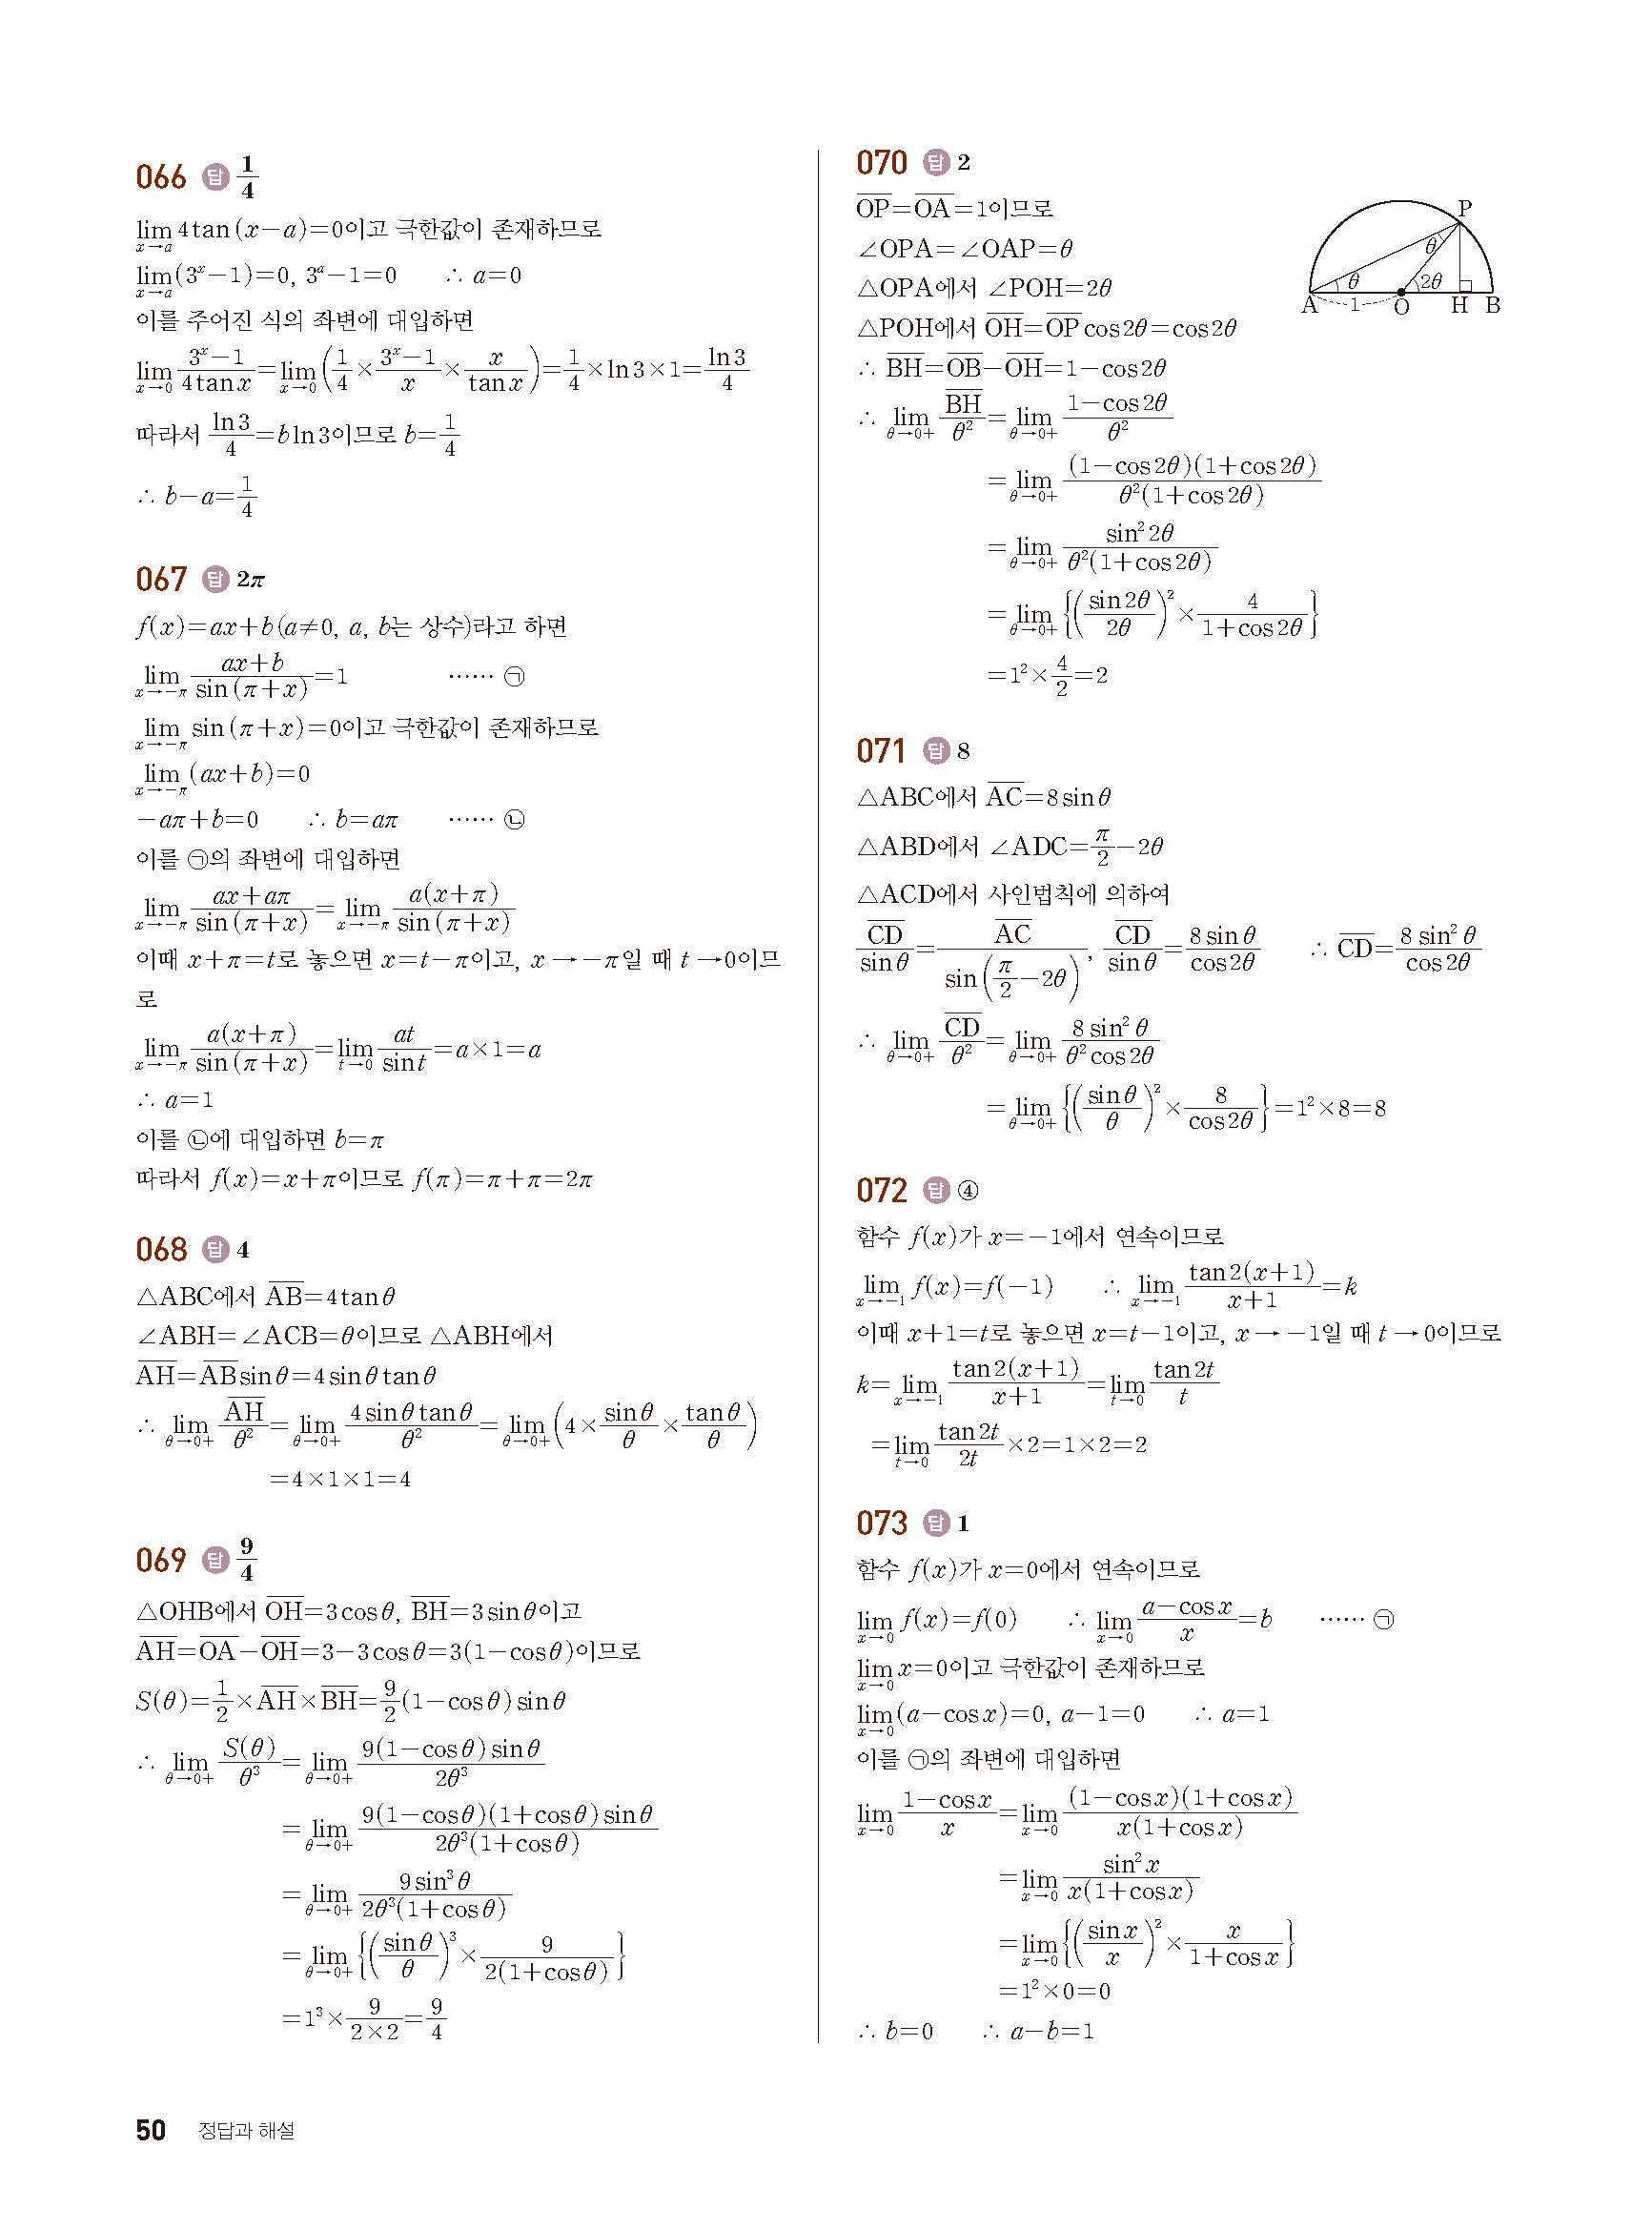 066 답 1/4
lim_{x→a} 4tan(x−a)=0이고 극한값이 존재하므로
lim_{x→a} (3^x−1)=0, 3^a−1=0 ∴ a=0
이를 주어진 식의 좌변에 대입하면
lim_{x→0} (3^x−1)/(4tan x)=lim_{x→0} (1/4×(3^x−1)/x×x/(tan x))=1/4×ln3×1=(ln3)/4
따라서 (ln3)/4=b ln3이므로 b=1/4
∴ b−a=1/4
067 답 2π
f(x)=ax+b(a≠0, a, b는 상수)라고 하면
lim_{x→−π} (ax+b)/(sin(π+x))=1 …… ㉠
lim_{x→−π} sin(π+x)=0이고 극한값이 존재하므로
lim_{x→−π} (ax+b)=0
−aπ+b=0 ∴ b=aπ …… ㉡
이를 ㉠의 좌변에 대입하면
lim_{x→−π} (ax+aπ)/(sin(π+x))=lim_{x→−π} (a(x+π))/(sin(π+x))
이때 x+π=t로 놓으면 x=t−π이고, x→−π일 때 t→0이므
로
lim_{x→−π} (a(x+π))/(sin(π+x))=lim_{t→0} (at)/(sin t)=a×1=a
∴ a=1
이를 ㉡에 대입하면 b=π
따라서 f(x)=x+π이므로 f(π)=π+π=2π
068 답 4
△ABC에서 A̅B̅=4tanθ
∠ABH=∠ACB=θ이므로 △ABH에서
A̅H̅=A̅B̅sinθ=4sinθtanθ
∴ lim_{θ→0+} A̅H̅/θ²=lim_{θ→0+} (4sinθtanθ)/θ²=lim_{θ→0+} (4×(sinθ)/θ×(tanθ)/θ)
=4×1×1=4
069 답 9/4
△OHB에서 O̅H̅=3cosθ, B̅H̅=3sinθ이고
A̅H̅=O̅A̅−O̅H̅=3−3cosθ=3(1−cosθ)이므로
S(θ)=1/2×A̅H̅×B̅H̅=9/2(1−cosθ)sinθ
∴ lim_{θ→0+} S(θ)/θ³=lim_{θ→0+} (9(1−cosθ)sinθ)/(2θ³)
=lim_{θ→0+} (9(1−cosθ)(1+cosθ)sinθ)/(2θ³(1+cosθ))
=lim_{θ→0+} (9sin³θ)/(2θ³(1+cosθ))
=lim_{θ→0+} {((sinθ)/θ)³×9/(2(1+cosθ))}
=1³×9/(2×2)=9/4
070 답 2
O̅P̅=O̅A̅=1이므로
∠OPA=∠OAP=θ
△OPA에서 ∠POH=2θ
△POH에서 O̅H̅=O̅P̅cos2θ=cos2θ
∴ B̅H̅=O̅B̅−O̅H̅=1−cos2θ
P
θ
θ 2θ
A 1 O H B
∴ lim_{θ→0+} B̅H̅/θ²=lim_{θ→0+} (1−cos2θ)/θ²
=lim_{θ→0+} ((1−cos2θ)(1+cos2θ))/(θ²(1+cos2θ))
=lim_{θ→0+} (sin²2θ)/(θ²(1+cos2θ))
=lim_{θ→0+} {((sin2θ)/(2θ))²×4/(1+cos2θ)}
=1²×4/2=2
071 답 8
△ABC에서 A̅C̅=8sinθ
△ABD에서 ∠ADC=π/2−2θ
△ACD에서 사인법칙에 의하여
C̅D̅/(sinθ)=A̅C̅/(sin(π/2−2θ)), C̅D̅/(sinθ)=(8sinθ)/(cos2θ) ∴ C̅D̅=(8sin²θ)/(cos2θ)
∴ lim_{θ→0+} C̅D̅/θ²=lim_{θ→0+} (8sin²θ)/(θ²cos2θ)
=lim_{θ→0+} {((sinθ)/θ)²×8/(cos2θ)}=1²×8=8
072 답 ④
함수 f(x)가 x=−1에서 연속이므로
lim_{x→−1} f(x)=f(−1) ∴ lim_{x→−1} (tan2(x+1))/(x+1)=k
이때 x+1=t로 놓으면 x=t−1이고, x→−1일 때 t→0이므로
k=lim_{x→−1} (tan2(x+1))/(x+1)=lim_{t→0} (tan2t)/t
=lim_{t→0} (tan2t)/(2t)×2=1×2=2
073 답 1
함수 f(x)가 x=0에서 연속이므로
lim_{x→0} f(x)=f(0) ∴ lim_{x→0} (a−cosx)/x=b …… ㉠
lim_{x→0} x=0이고 극한값이 존재하므로
lim_{x→0} (a−cosx)=0, a−1=0 ∴ a=1
이를 ㉠의 좌변에 대입하면
lim_{x→0} (1−cosx)/x=lim_{x→0} ((1−cosx)(1+cosx))/(x(1+cosx))
=lim_{x→0} (sin²x)/(x(1+cosx))
=lim_{x→0} {((sinx)/x)²×x/(1+cosx)}
=1²×0=0
∴ b=0 ∴ a−b=1
50 정답과 해설